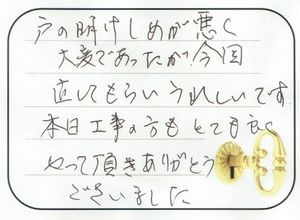 戸の明けしめが悪く
大変であったが今回
直してもらいうれしいです
本日工事の方もとても良く
やって頂きありがとう
ございました